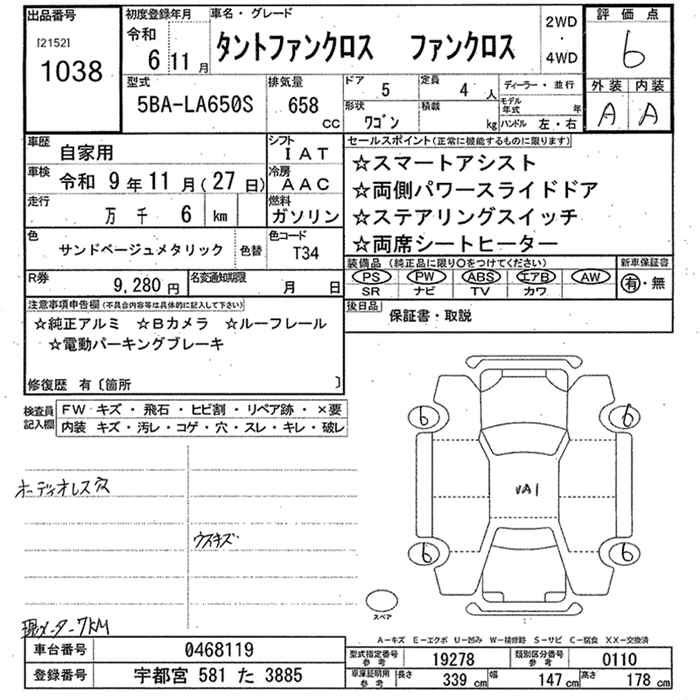 出品番号 初度登録年月 車名・グレード 2WD ・ 4WD 評価点
[2152] 1038 令和 6 11月 タントファンクロス ファンクロス 6
型式 排気量 ドア 5 定員 4人 ディーラー・並行 外装 内装
5BA-LA650S 658 cc 形状 ワゴン 積載 kg モデル年式 年 A A
ハンドル 左・右
車歴 自家用 シフト IAT セールスポイント(正常に機能するものに限ります)
車検 令和 9年 11月(27日) 冷房 AAC ☆スマートアシスト
☆両側パワースライドドア
走行 万 千 6 km 燃料 ガソリン ☆ステアリングスイッチ
色 サンドベージュメタリック 色替 色コード T34 ☆両席シートヒーター
装備品(純正品に限り○をつけてください) 新車保証書
R券 9,280円 名変通知期限 月 日 PS PW ABS エアB AW 有・無
SR ナビ TV カワ
注意事項申告欄(不具合内容等は具体的に記入して下さい) 後日品 保証書・取説
☆純正アルミ ☆Bカメラ ☆ルーフレール
☆電動パーキングブレーキ
修復歴 有〔箇所 〕
検査員記入欄 FW キズ・飛石・ヒビ割・リペア跡・×要
内装 キズ・汚レ・コゲ・穴・スレ・キレ・破レ
6 6
オーディオレス穴 UA1
ウスキズ
6 6
スペア
現メーター7KM
A-キズ E-エクボ U-凹み W-補修跡 S-サビ C-腐食 XX-交換済
車台番号 0468119 型式指定番号参考 19278 類別区分番号参考 0110
登録番号 宇都宮 581 た 3885 車庫証明用参考 長さ 339 cm 幅 147 cm 高さ 178 cm